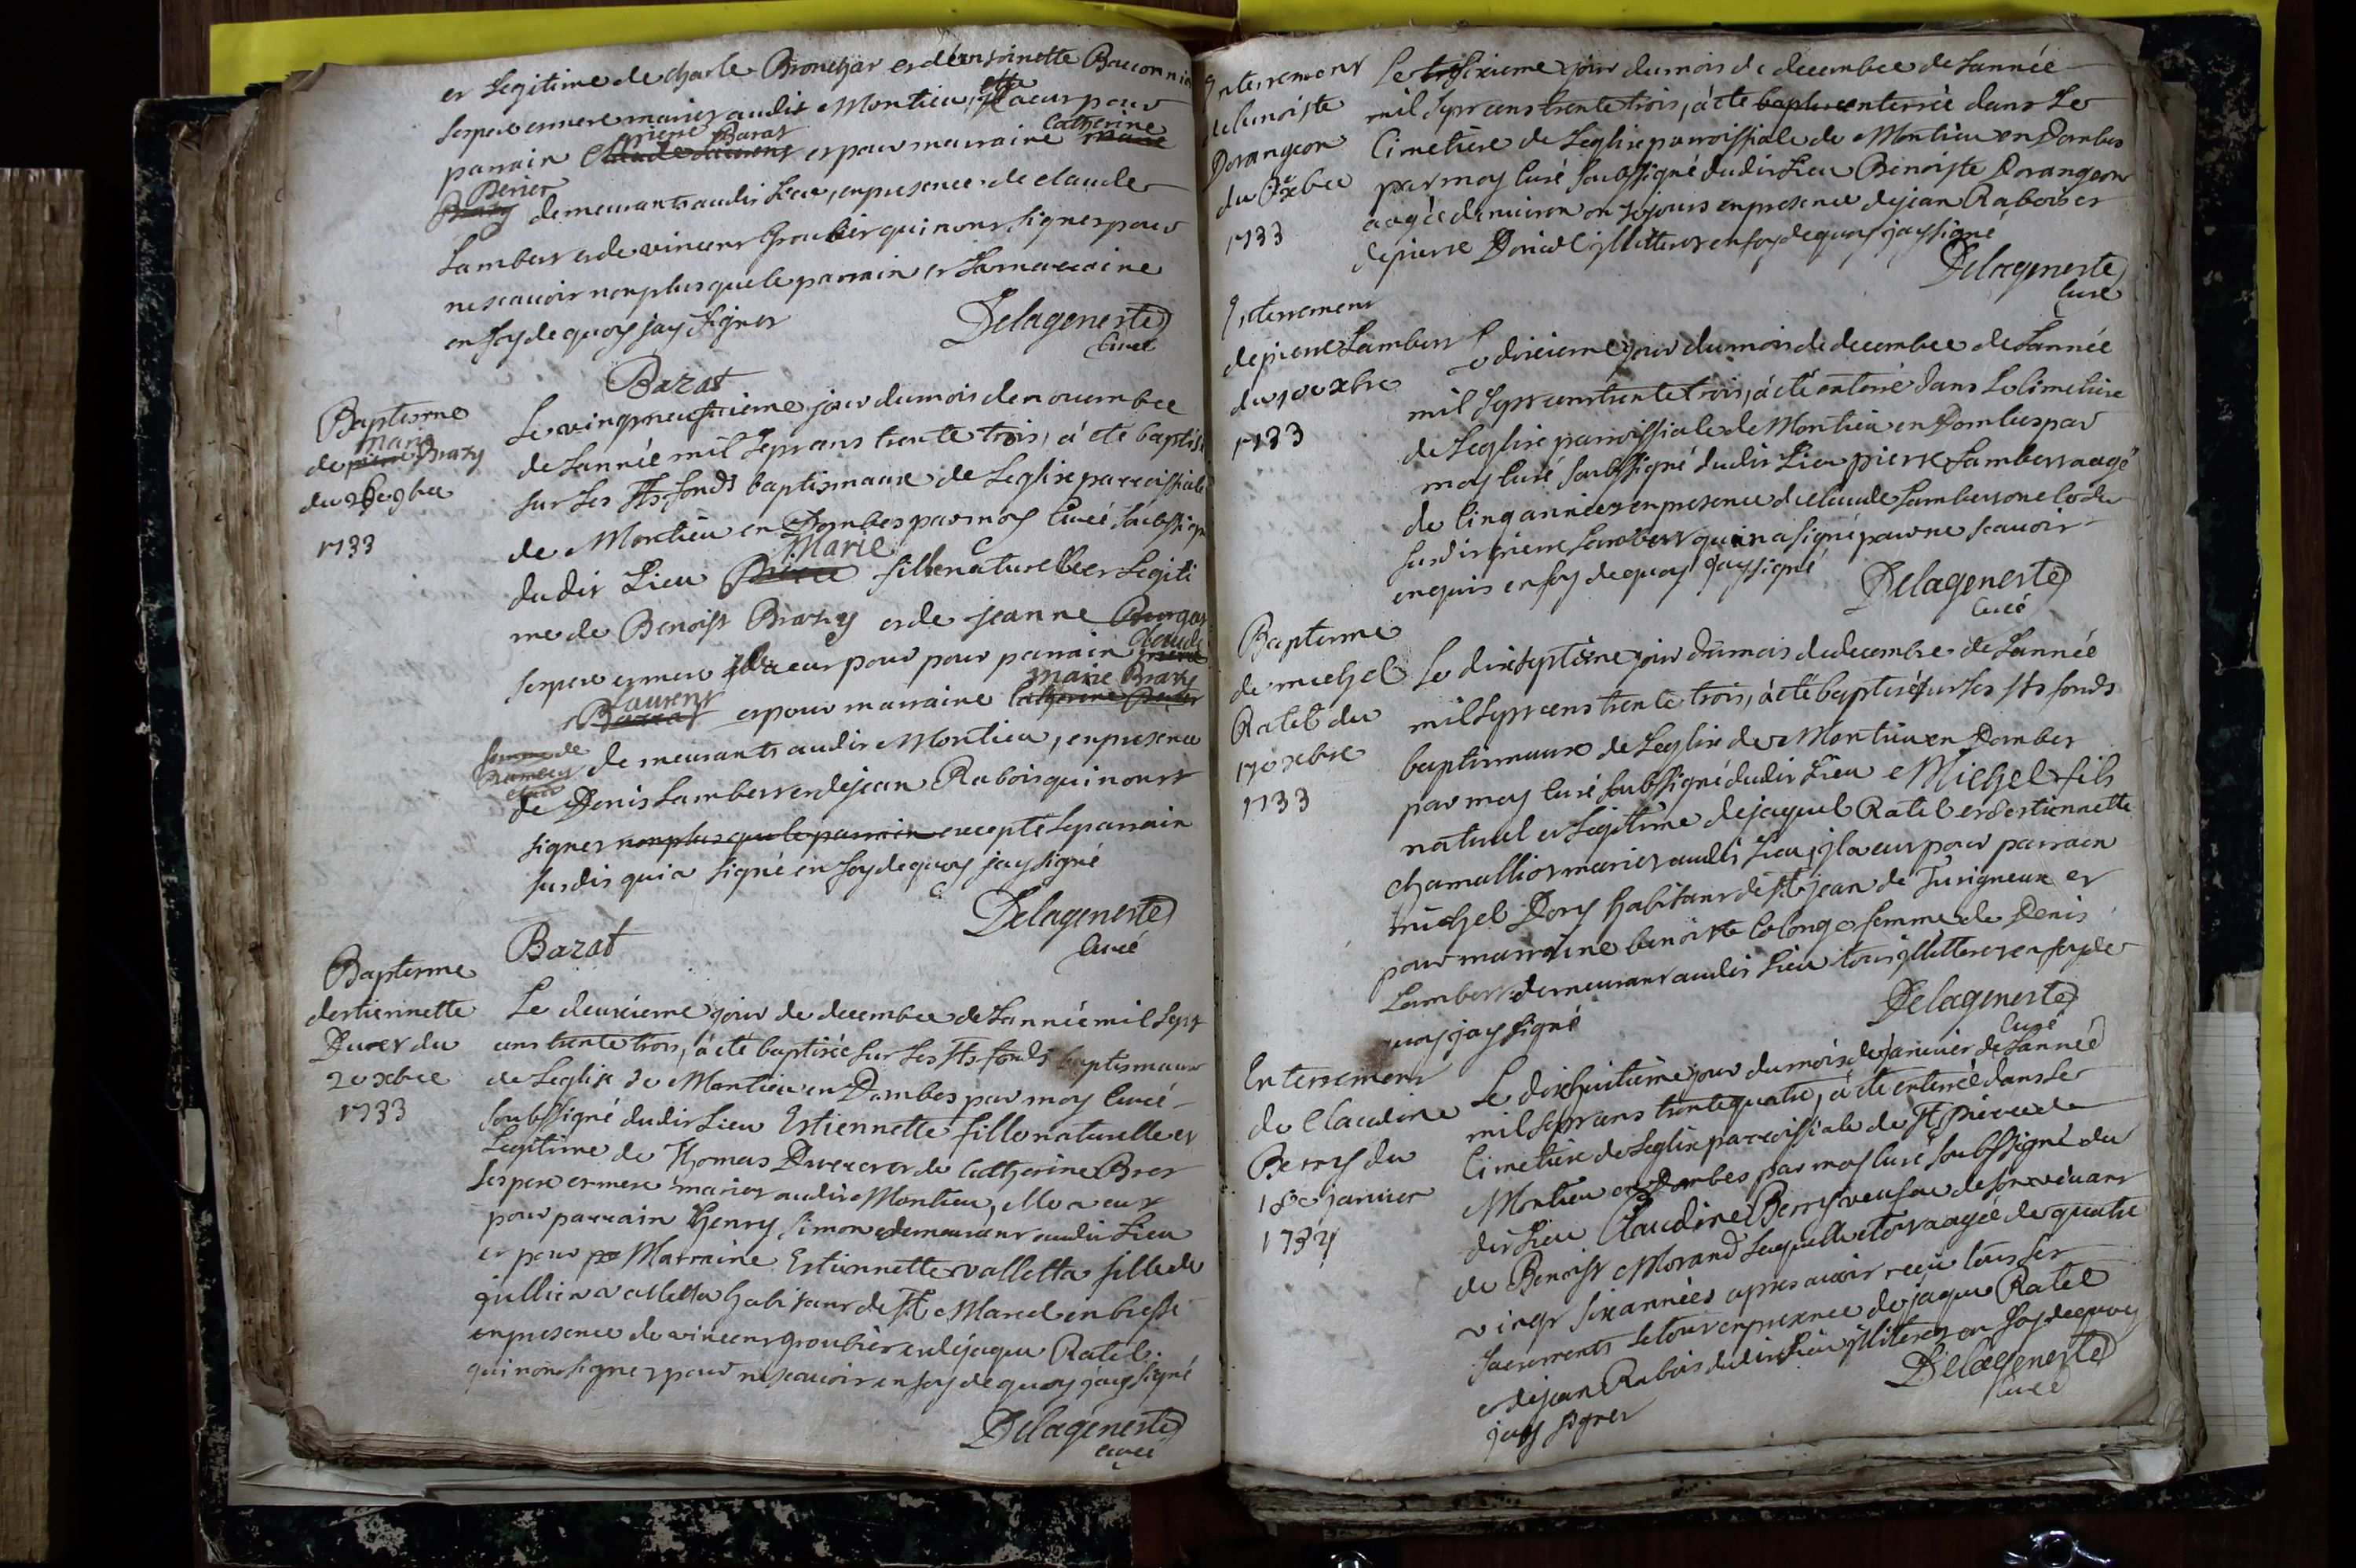 et Legitime de charle Brouchar et deantoinette Baconnier
ses pere et mere mariez audit Montieu, elle a eut pour
pierre Barat Catherine
parrain Claude Laurent et pour marraine Marie
Perier
Brazy demeurants audit Lieu, en presence de claude
Lambert et de vincent Groubier qui n'ont signez pour
ne scauoir non plus que le parrain et La marraine
en foy de quoy jay Signez
Delageneste
Curé
Barat
Baptesme
Marie
de pierre Brazy
du 29e 9bre
1733
Le vingt neufuieme jour du mois de nouembre
de Lannée mil Sept cens trente trois, a été baptisé
sur Les Sts fonds baptismaux de Leglise parroissiale
de Montieu en Dombes par moy Curé Soubssigné
Marie
dudit Lieu Pierre fille naturelle et Legiti
me de Benoist Brazy et de jeanne
Claude
ses pere et mere a eut pour pour parrain pierre
Laurent Marie Brazy
Barrat et pour marraine Catherine Perier
femme de
demeurants audit Montieu, en presence
de Denis Lambert et de jean Rabois qui n'ont
signez non plus que le parrain excepté Le parrain
susdit qui a signé en foy de quoy jay signé
Delageneste
Curé
Barat
Baptesme
destiennette
Durer du
2e xbre
1733
Le deuxieme jour de decembre de Lannée mil Sept
cens trente trois, a été baptisée sur Les Sts fonds baptismaux
de Leglise de Montieu en Dombes par moy Curé
Soubssigné dudit Lieu Estiennette fille naturelle et
Legitime de Thomas Durer et de Catherine Bror
ses pere et mere mariez audit Montieu, elle a eut
pour parrain Henry Simon demeurant audit Lieu
et pour pa Marraine Estiennette valletta fille de
gullien valletta habitant de St Marcel en bresse
en presence de vincent groubier et de jaque Ratel
qui n'ont signez pour ne scauoir en foy de quoy jay signé
Delageneste
curé
Enterrement
de benoiste
Dorangeon
du 6e xbre
1733
Le tr Sixieme jour du mois de decembre de Lannée
mil Sept cens trente trois, a été baptise enterrée dans Le
Cimetiere de Leglise parroissiale de Montieu en Dombes
par moy Curé Soubssigné dudit Lieu Benoiste Dorangeon
aagée d'enuiron jours en presence de jean Rabois et
de pierre jlliterez en foy de quoy jay signé
Delageneste
Curé
Enterrement
de pierre Lambert
du 10e xbre
1733
Le dixieme jour du mois de decembre de Lannée
mil Sept cens trente trois, a été enterré dans Le Cimetiere
de Leglise parroissiale de Montieu en Dombes par
moy Curé Soubssigné dudit Lieu pierre Lambert aagé
de Cinq années en presence de claude Lambert oncle du
susdit pierre Lambert qui n'a signé pour ne scauoir
enquis en foy de quoy jay signé
Delageneste
Curé
Baptesme
de michel
Ratel du
17e xbre
1733
Le dixseptieme jour du mois de decembre de Lannée
mil Sept cens trente trois, a été baptisé sur Les Sts fonds
baptismaux de Leglise de Montieu en Dombes
par moy Curé Soubssigné dudit Lieu Michel fils
naturel et Legitime de jaque Ratel et destiennette
chamallion mariez audit Lieu, jl a eut pour parrain
michel Dory habitant de St jean de Turigneux et
pour marraine benoiste Colonge femme de Denis
Lambert demeurant audit Lieu tous jlliterez en foy de
quoy jay signé
Delageneste
Curé
Enterrement
de Claudine
Berry du
18e januier
1734
Le dixhuitieme jour du mois de januier de Lannée
mil Sept cens trente quatre, a été enterrée dans Le
Cimetiere de Leglise parroissiale de St Pierre de
Montieu en Dombes par moy Curé Soubssigné du
dit Lieu Claudine Berry veufue de son viuant
de Benoist Morand Laquelle etoit aagée de quatre
vingt six années apres auoir reçu tous Les
sacrements Le tout en presence de jaque Ratel
et de jean Rabois dudit Lieu jlliterez en foy de quoy
jay signez
Delageneste
Curé